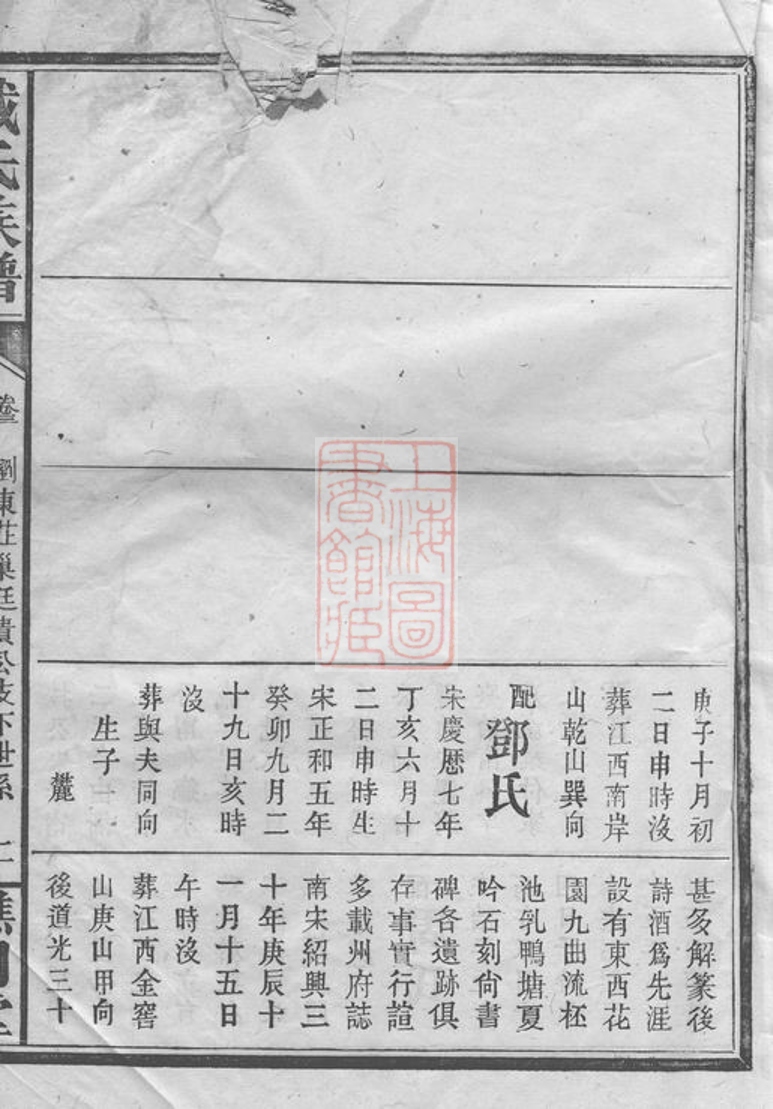 庚子十月初
二日申時沒
葬江西南岸
山乾山巽向
配鄧氏
宋慶歷七年
丁亥六月十
二日申時生
宋正和五年
癸卯九月二
十九日亥時
沒
葬與夫同向
生子
麓
甚多解篆後
詩酒爲先涯
設有東西花
園九曲流杯
池乳鴨塘夏
吟石刻尙書
碑各遺跡俱
存事實行諠
多載州府誌
南宋紹興三
十年庚辰十
一月十五日
午時沒
葬江西金窖
山庚山甲向
後道光三十
氏族譜
劉東莊巢廷貴公支下世系
上海圖書館藏